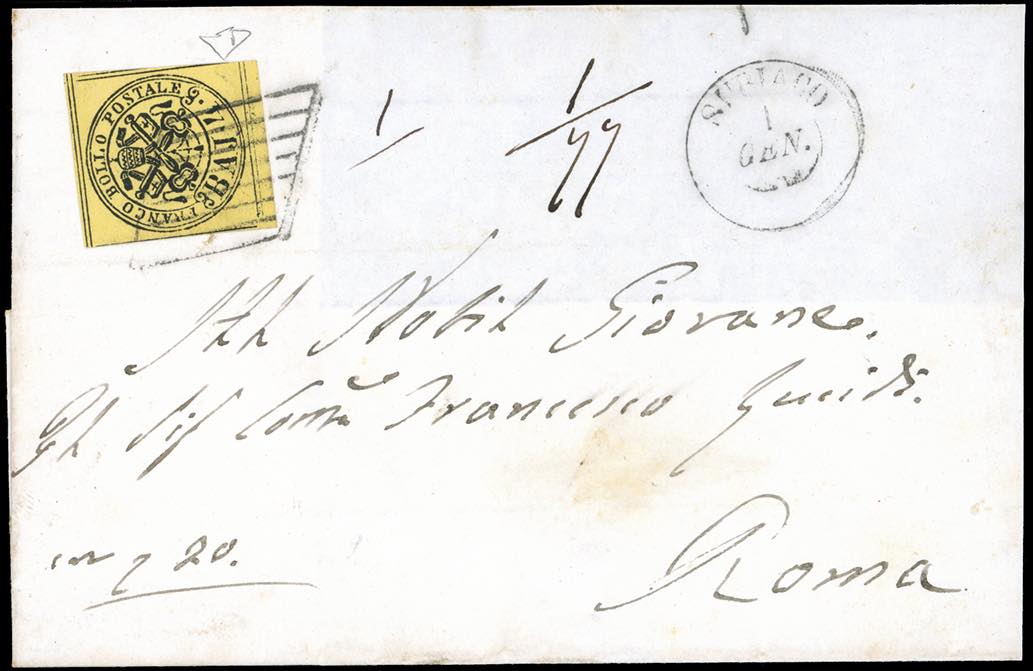 FRANCO BOLLO POSTALE
BAJ. 5.
1/
1/77
SUBIACO
1
GEN.
Nobil Giovane.
Sig Francesco Guidi.
20.
Roma